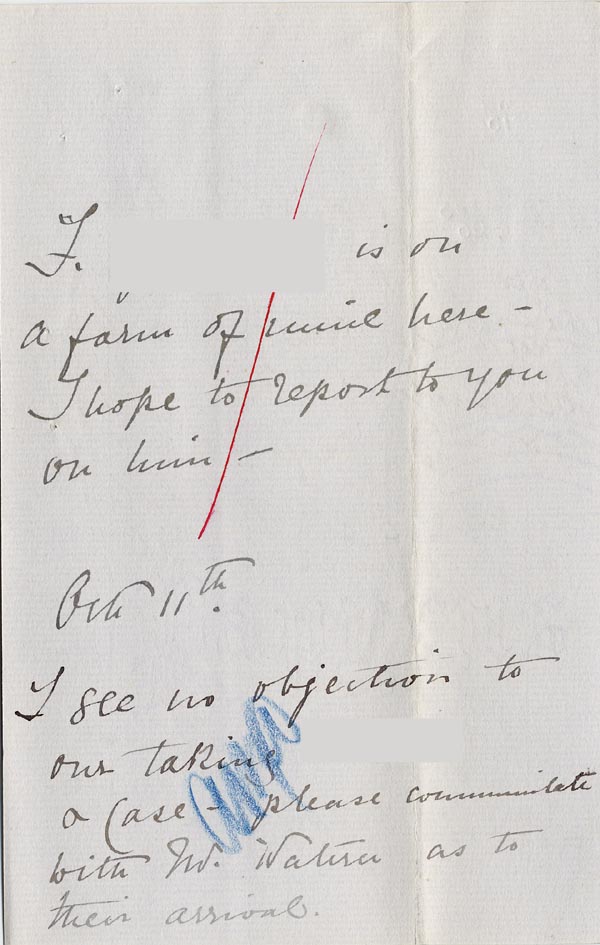 F. is on
a farm of mine here -
I hope to report to you
on him -
Oct 11th.
I see no objection to
our taking
a case - please communicate
with Mr. Waters as to
their arrival.